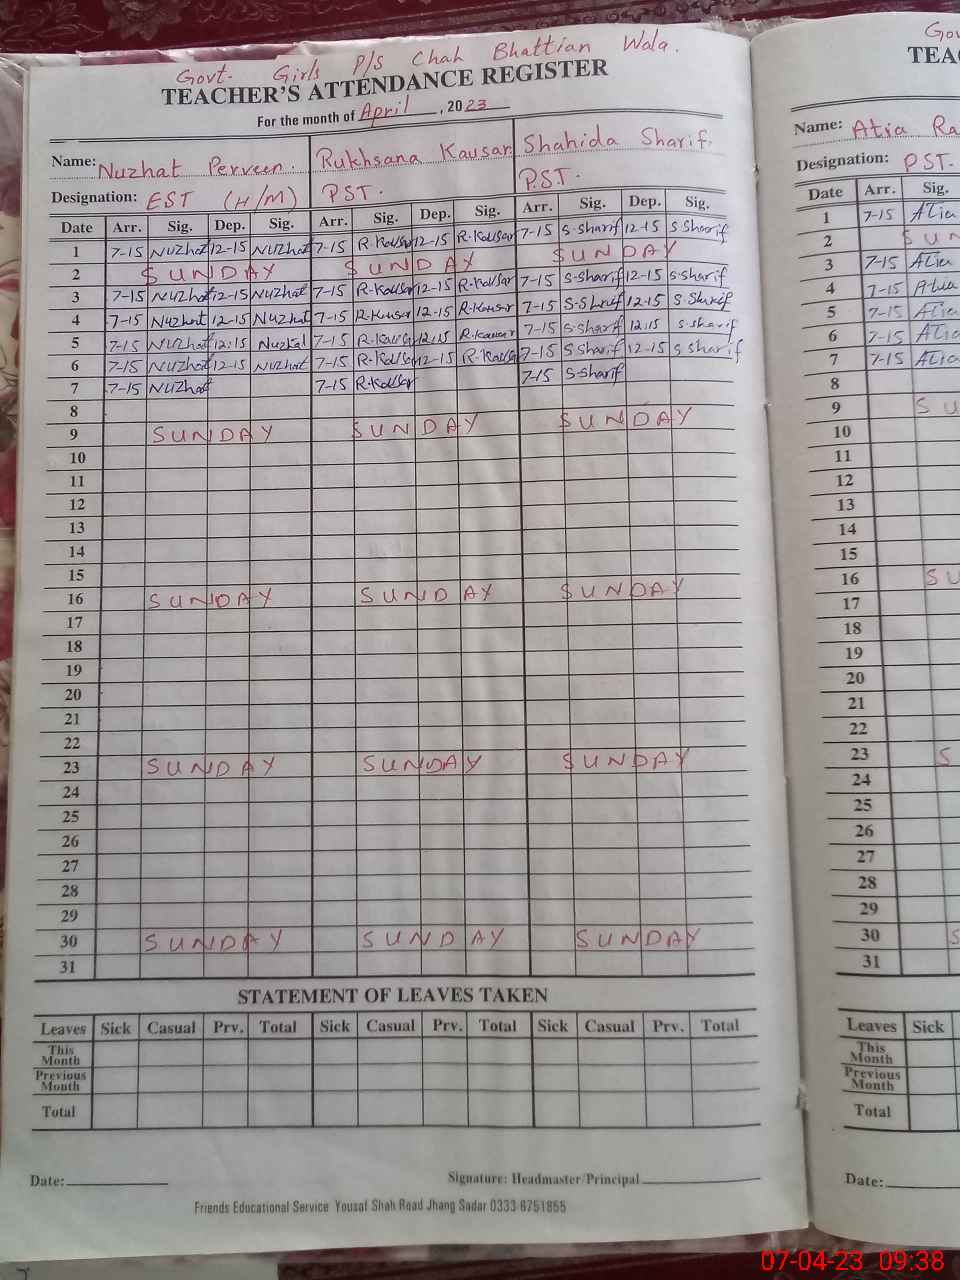 Govt. Girls P/S Chah Bhattian Wala.
TEACHER'S ATTENDANCE REGISTER
For the month of April, 2023
Name: Nuzhat Perveen. Rukhsana Kausar Shahida Sharif.
Designation: EST (H/M) PST. P.S.T.
Date Arr. Sig. Dep. Sig. Arr. Sig. Dep. Sig. Arr. Sig. Dep. Sig.
1 7-15 Nuzhat 12-15 Nuzhat 7-15 R.Kausar 12-15 R.Kausar 7-15 S-sharif 12-15 S-Sharif
2 SUNDAY SUNDAY SUNDAY
3 7-15 Nuzhat 12-15 Nuzhat 7-15 R.Kausar 12-15 R.Kausar 7-15 S-sharif 12-15 S.sharif
4 7-15 Nuzhat 12-15 Nuzhat 7-15 R.Kausar 12-15 R.Kausar 7-15 S-Sharif 12-15 S.Sharif
5 7-15 Nuzhat 12:15 Nuzhat 7-15 R.Kausar 12:15 R.Kausar 7-15 S-sharif 12:15 S.sharif
6 7-15 Nuzhat 12-15 Nuzhat 7-15 R.Kausar 12-15 R.Kausar 7-15 S.Sharif 12-15 S sharif
7 7-15 Nuzhat 7-15 R.Kausar 7-15 S-Sharif
8
9 SUNDAY SUNDAY SUNDAY
10
11
12
13
14
15
16 SUNDAY SUNDAY SUNDAY
17
18
19
20
21
22
23 SUNDAY SUNDAY SUNDAY
24
25
26
27
28
29
30 SUNDAY SUNDAY SUNDAY
31
STATEMENT OF LEAVES TAKEN
Leaves Sick Casual Prv. Total Sick Casual Prv. Total Sick Casual Prv. Total
This Month
Previous Month
Total
Date: Signature: Headmaster/Principal
Friends Educational Service Yousaf Shah Road Jhang Sadar 0333-6751855
Name: Atia
Designation: PST.
Date Arr. Sig.
1 7-15 Atia
2 SUN
3 7-15 Atia
4 7-15 Atia
5 7-15 Atia
6 7-15 Atia
7 7-15 Atia
8
9 SU
10
11
12
13
14
15
16 SU
17
18
19
20
21
22
23 S
24
25
26
27
28
29
30 S
31
Leaves Sick
This Month
Previous Month
Total
Date:
07-04-23 09:38